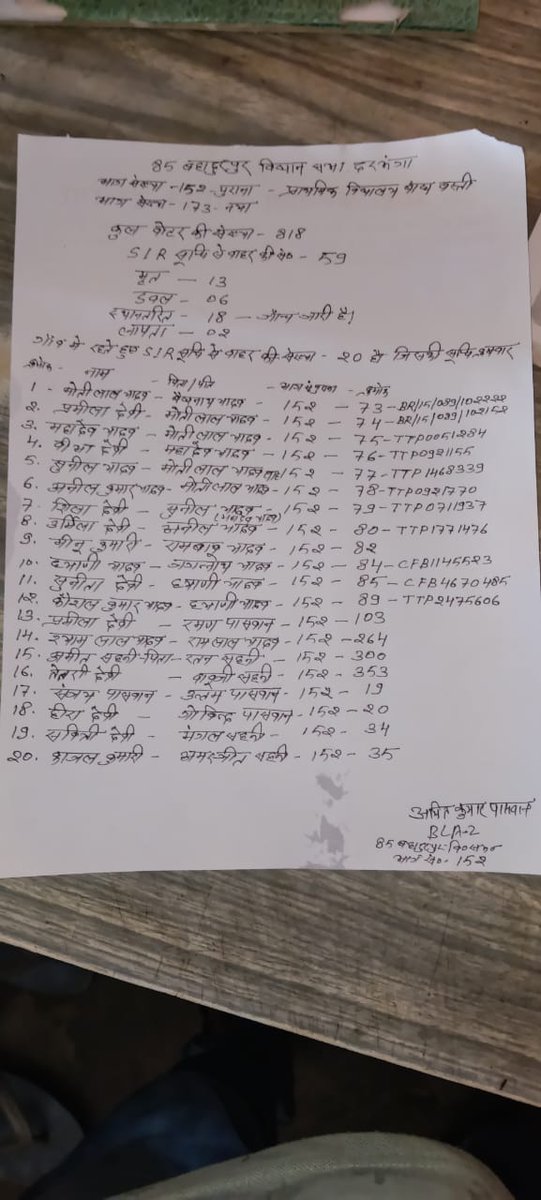 85 बहादुरपुर विधान सभा दरभंगा
भाग संख्या - 152 - पुराना - प्राथमिक विद्यालय
भाग संख्या - 173 - नया
कुल वोटर की संख्या - 818
SIR सूचि से बाहर की सं० - 59
मृत - 13
डबल - 06
स्थानतरित - 18 - जाँच जारी है।
लापता - 02
गाँव में रहते हुए SIR सूचि से बाहर की संख्या - 20 है जिसकी सूचि इस प्रकार
क्रमांक नाम - पिता/पति - भाग संख्या - क्रमांक
1. मोती लाल यादव - यादव - 152 - 73 - BR/15/089/102222
2. प्रमीला देवी - मोती लाल यादव - 152 - 74 - BR/15/099/102152
3. महादेव यादव - मोती लाल यादव - 152 - 75 - TTP0051284
4. देवी - महादेव यादव - 152 - 76 - TTP0921155
5. सुनील यादव - मोती लाल यादव - 152 - 77 - TTP1468339
6. अनील कुमार यादव - मोती लाल यादव - 152 - 78 - TTP0921770
7. शिला देवी - सुनील यादव - 152 - 79 - TTP0711937
8. उर्मिला देवी - अनील यादव - 152 - 80 - TTP1771476
9. कुमारी - यादव - 152 - 82
10. यादव - यादव - 152 - 84 - CFB1145523
11. सुनीता देवी - यादव - 152 - 85 - CFB4670485
12. कौशल कुमार यादव - यादव - 152 - 89 - TTP2475606
13. प्रमीला देवी - रमण पासवान - 152 - 103
14. श्याम लाल यादव - राम लाल यादव - 152 - 264
15. अमीत सहनी - पिता - रतन सहनी - 152 - 300
16. देवी - सहनी - 152 - 353
17. संजय पासवान - उत्तम पासवान - 152 - 19
18. हीरा देवी - गोविन्द पासवान - 152 - 20
19. सवित्री देवी - मंगल सहनी - 152 - 34
20. काजल कुमारी - अमरजीत सहनी - 152 - 35
अमित कुमार पासवान
BLA-2
85 बहादुरपुर
भाग सं० - 152